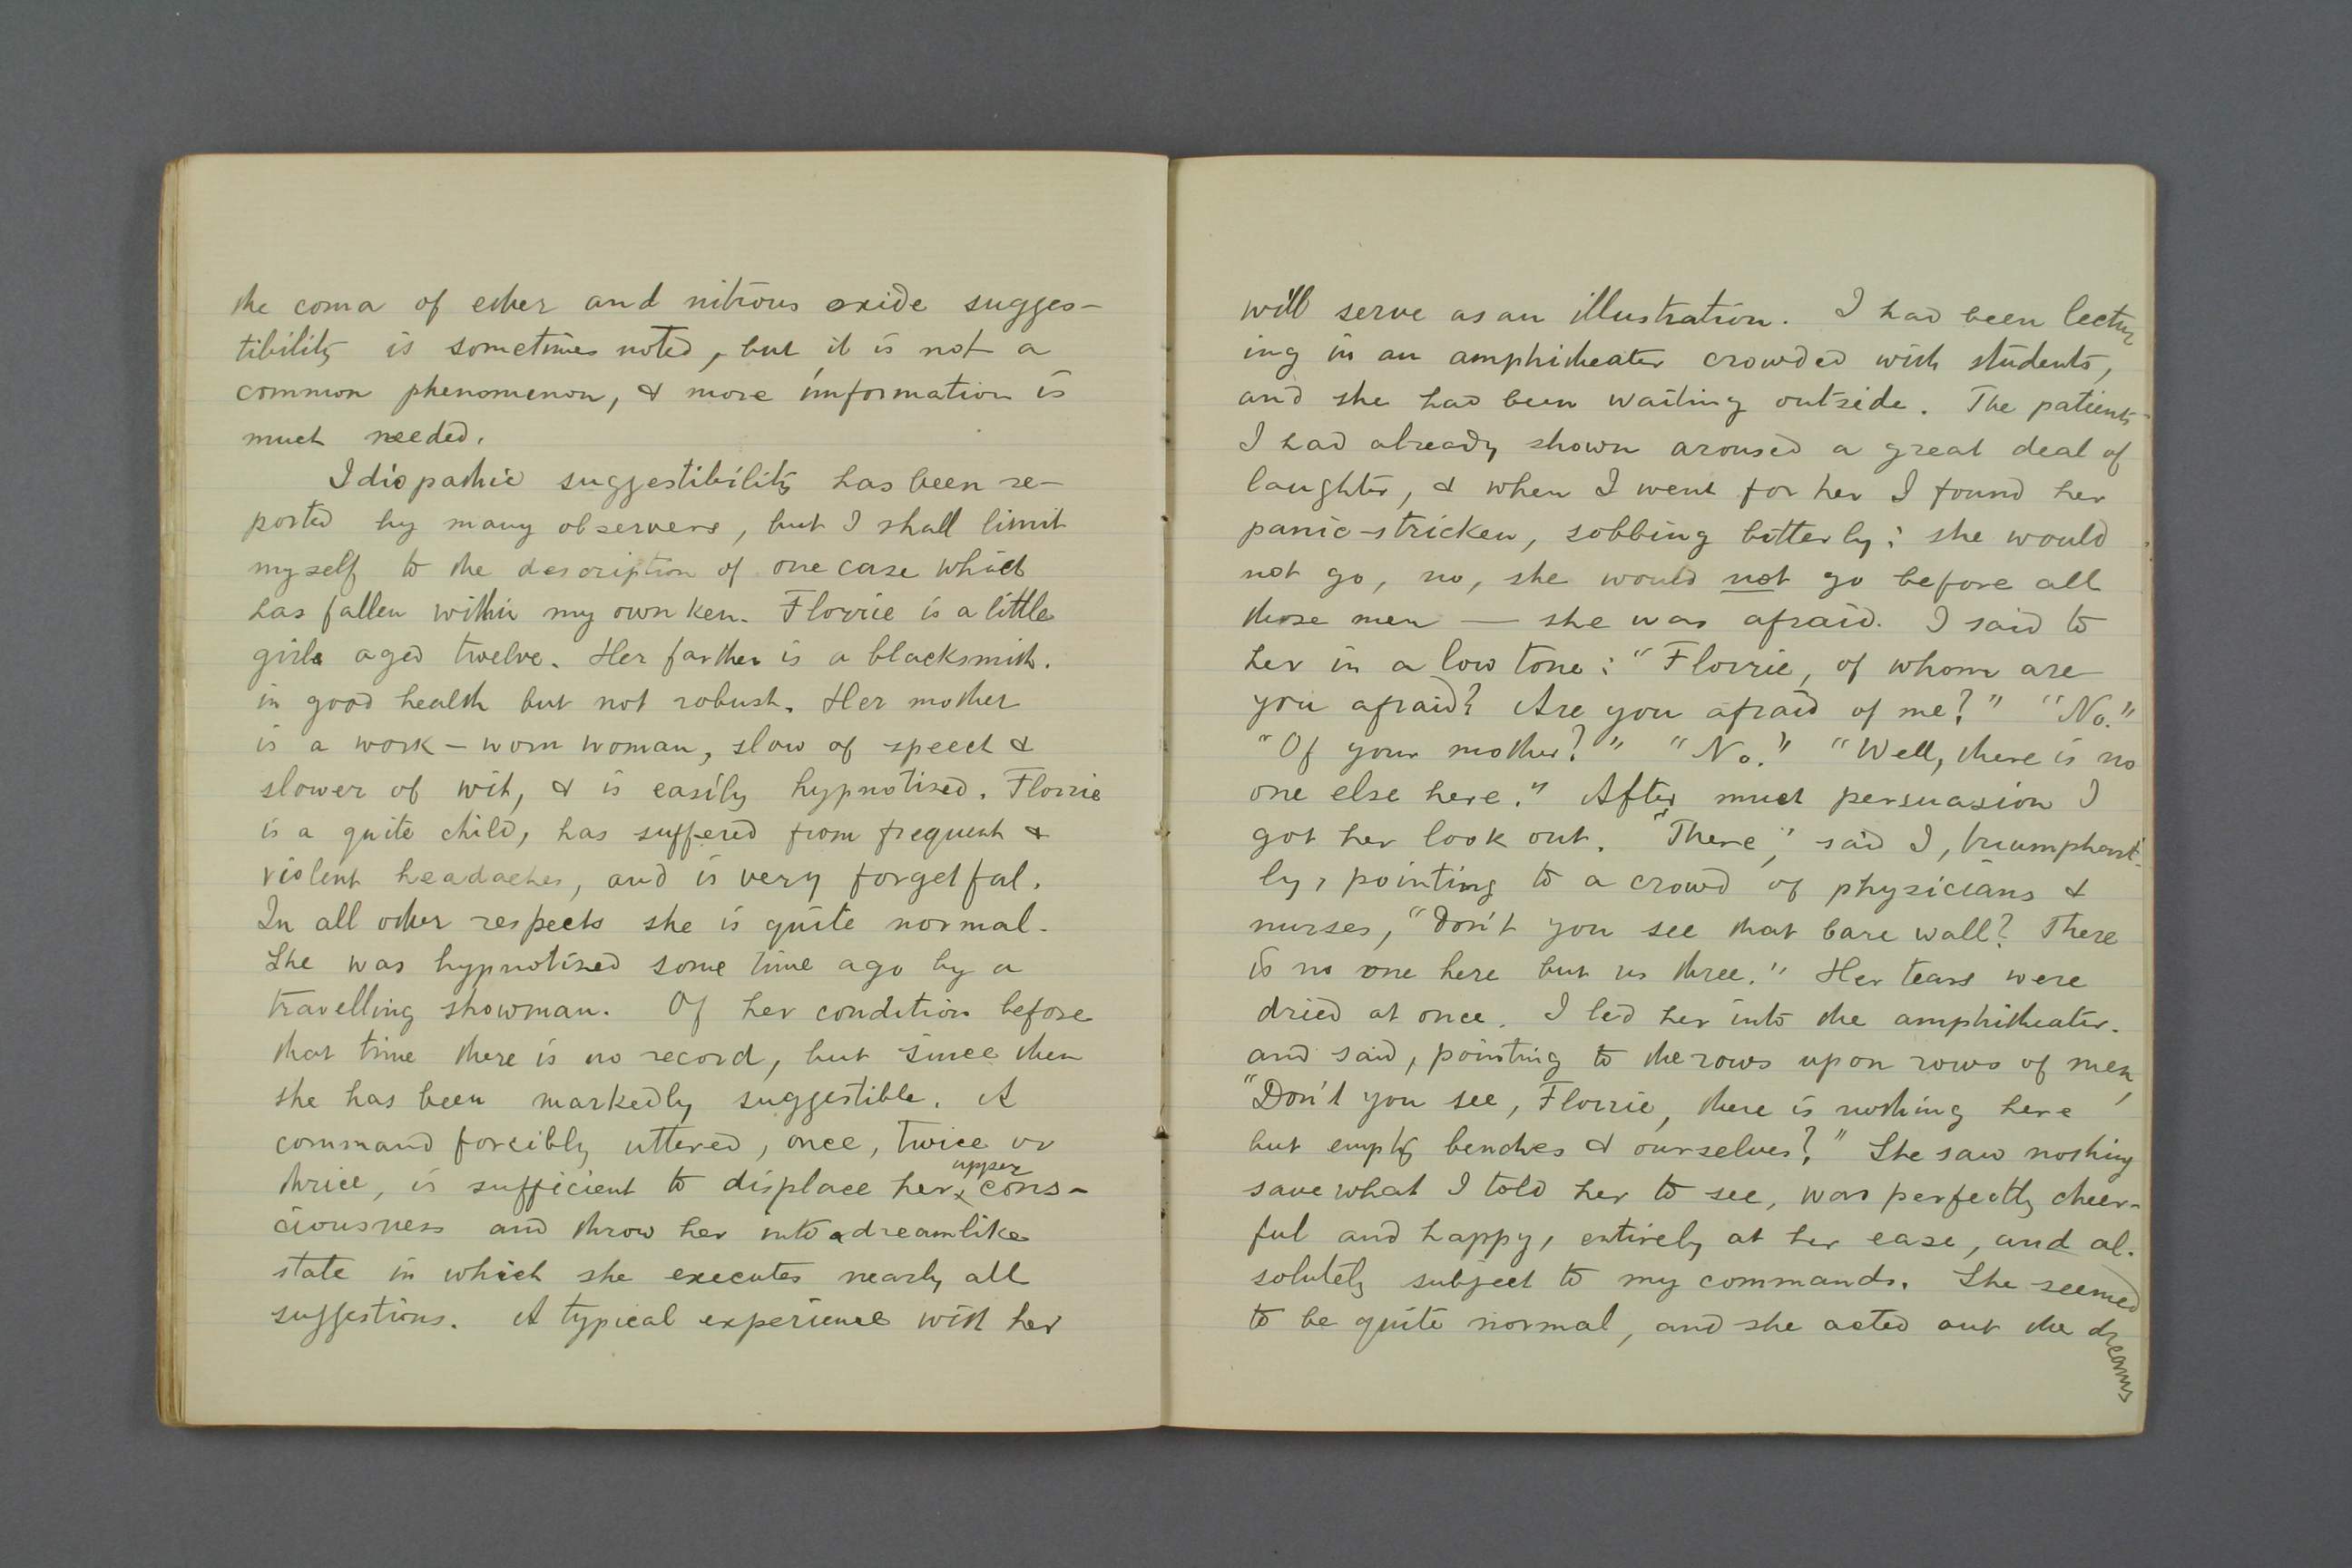 the coma of ether and nitrous oxide sugges-
tibility is sometimes noted, but it is not a
common phenomenon, & more imformation is
much needed.
Idiopathic suggestibility has been re-
ported by many observers, but I shall limit
myself to the description of one case which
has fallen within my own ken. Florrie is a little
girl aged twelve. Her farther is a blacksmith.
in good health but not robust. Her mother
is a work-worn woman, slow of speech &
slower of wit, & is easily hypnotised. Florrie
is a quite child, has suffered from frequent &
violent headaches, and is very forgetful.
In all other respects she is quite normal.
She was hypnotised some time ago by a
travelling showman. Of her condition before
that time there is no record, but since then
she has been markedly suggestible. A
command forcibly uttered, once, twice or
thrice, is sufficient to displace her upper cons-
ciousness and throw her into a dreamlike
state in which she executes nearly all
suggestions. A typical experience with her
will serve as an illustration. I had been lectur
ing in an amphitheater crowded with students,
and she had been waiting outside. The patients
I had already shown aroused a great deal of
laughter, & when I went for her I found her
panic-stricken, sobbing bitterly; she would
not go, no, she would not go before all
those men — she was afraid. I said to
her in a low tone: "Florrie, of whom are
you afraid? Are you afraid of me?" "No."
"Of your mother?" "No." "Well, there is no
one else here." After much persuasion I
got her look out. "There," said I, triumphant-
ly, pointing to a crowd of physicians &
nurses, "Don't you see that bare wall? There
is no one here but us three." Her tears were
dried at once. I led her into the amphitheater.
and said, pointing to the rows upon rows of men,
"Don't you see, Florrie, there is nothing here
but empty benches & ourselves?" She saw nothing
save what I told her to see, was perfectly cheer-
ful and happy, entirely at her ease, and al.
solutely subject to my commands. She seemed
to be quite normal, and she acted out the dreams